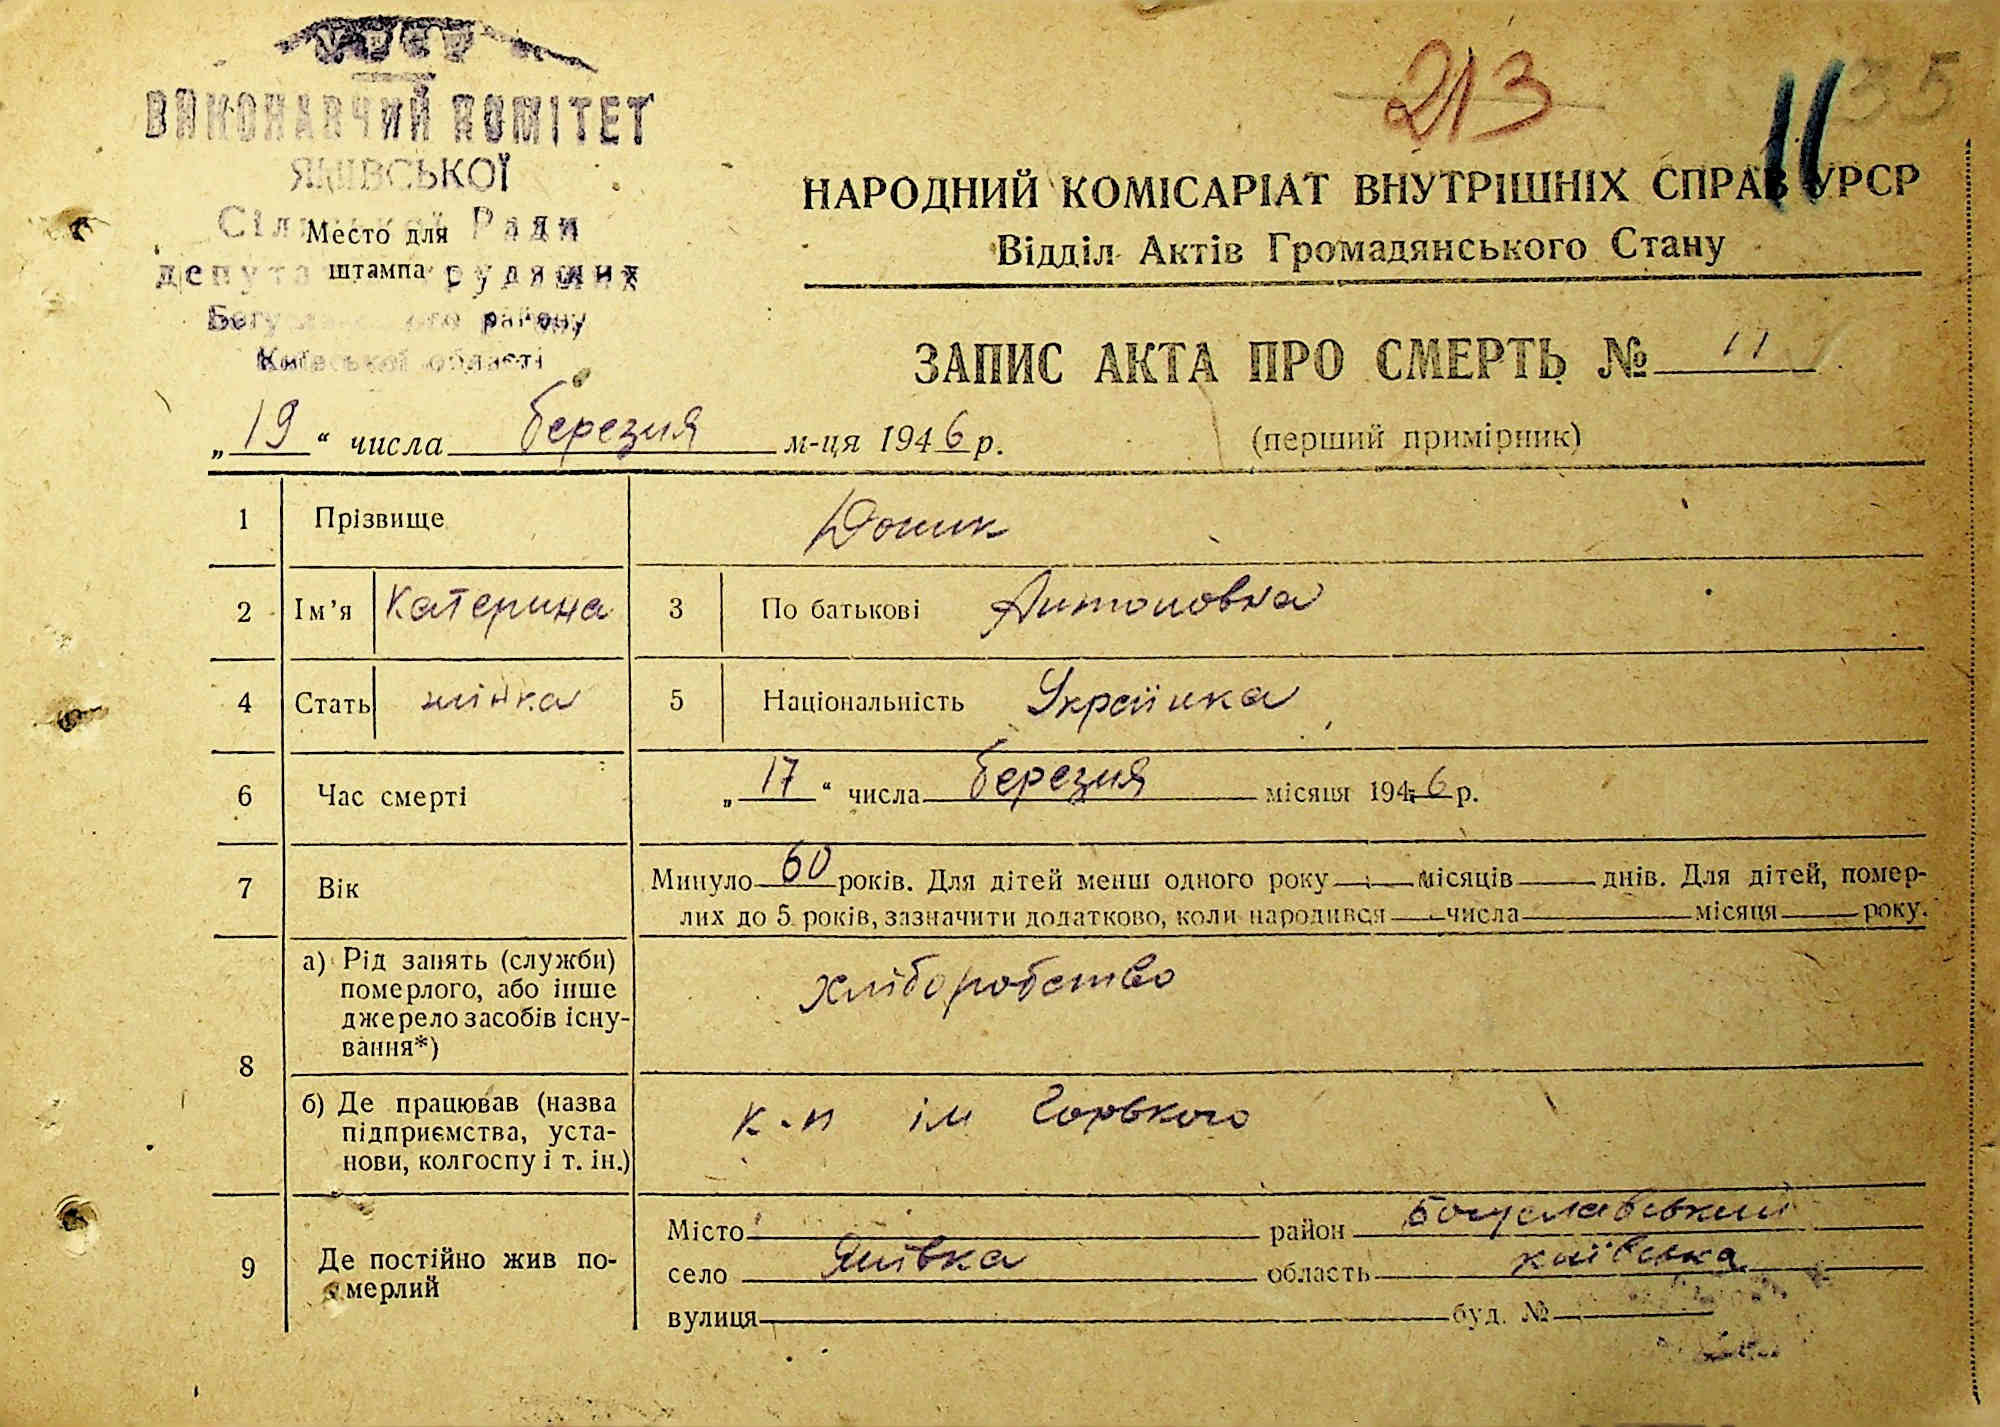 УРСР
ВИКОНАВЧИЙ КОМІТЕТ
ЯЦІВСЬКОЇ
Сільської Ради
депутатів трудящих
Богуславського району
Київської області
Место для
штампа
213
11
35
НАРОДНИЙ КОМІСАРІАТ ВНУТРІШНІХ СПРАВ УРСР
Відділ Актів Громадянського Стану
ЗАПИС АКТА ПРО СМЕРТЬ № 11
„19“ числа березня м-ця 1946 р.
(перший примірник)
1 Прізвище Доник
2 Ім’я Катерина 3 По батькові Антоновна
4 Стать жінка 5 Національність Українка
6 Час смерті „17“ числа березня місяця 1946 р.
7 Вік Минуло 60 років. Для дітей менш одного року місяців днів. Для дітей, помер-
лих до 5 років, зазначити додатково, коли народився числа місяця року.
8 а) Рід занять (служби)
померлого, або інше
джерело засобів існу-
вання*)
хліборобство
б) Де працював (назва
підприємства, уста-
нови, колгоспу і т. ін.)
к-п ім Горького
9 Де постійно жив по-
мерлий
Місто район Богуславський
село Яцівка область київська
вулиця буд. №